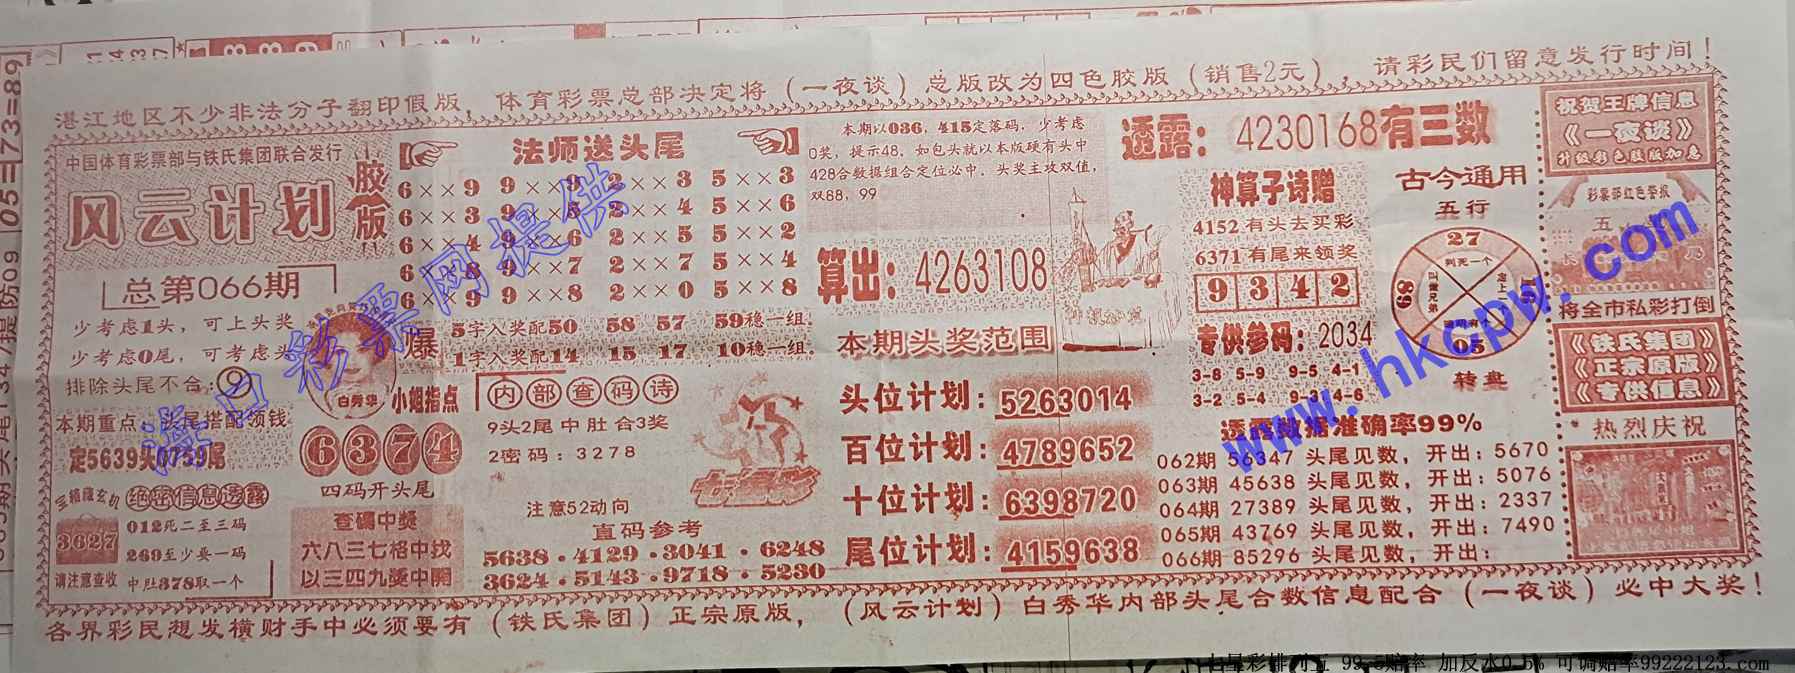 湛江地区不少非法分子翻印假版，体育彩票总部决定将（一夜谈）总版改为四色胶版（销售2元），请彩民们留意发行时间！
中国体育彩票部与铁氏集团联合发行
风云计划
胶版
总第066期
少考虑1头，可上头奖
少考虑0尾，可考虑头
排除头尾不合：9
本期重点：头尾搭配领钱
定5639头0759尾
绝密信息透露
3627
012死二至三码
269至少要一码
请注意查收
中肚378取一个
法师送头尾
6××9 9××9 2××3 5××3
6××3 9××5 2××4 5××6
6××4 9××6 2××5 5××2
6××8 9××7 2××7 5××4
6××9 9××8 2××0 5××8
爆
5字入奖配50 58 57 59稳一组.
1字入奖配14 15 17 10稳一组.
白秀华
小姐指点
6374
四码开头尾
查码中奖
六八三七格中找
以三四九奖中開
内部查码诗
9头2尾中肚合3奖
2密码：3278
注意52动向
七星彩
直码参考
5638·4129·3041·6248
3624·5143·9718·5230
本期以036，415定落码，少考虑
0奖，提示48，如包头就以本版硬有头中
428合数据组合定位必中，头奖主攻双值，
双88，99
算出：4263108
本期头奖范围
头位计划：5263014
百位计划：4789652
十位计划：6398720
尾位计划：4159638
透露：4230168有三数
神算子诗赠
4152有头去买彩
6371有尾来领奖
9342
专供参码：2034
3-8 5-9 9-5 4-1
3-2 5-4 9-3 4-6
古今通用
五行
27
判死一个
89
05
转盘
透露数据准确率99%
062期 56347 头尾见数，开出：5670
063期 45638 头尾见数，开出：5076
064期 27389 头尾见数，开出：2337
065期 43769 头尾见数，开出：7490
066期 85296 头尾见数，开出：
祝贺王牌信息
《一夜谈》
升级彩色胶版加急
彩票部红色警报
将全市私彩打倒
《铁氏集团》
《正宗原版》
《专供信息》
热烈庆祝
各界彩民想发横财手中必须要有（铁氏集团）正宗原版，（风云计划）白秀华内部头尾合数信息配合（一夜谈）必中大奖！
海口彩票网提供
www.hkcpw.com
七星彩排列五 99.5赔率 加反水0.5% 可调赔率99222123.com